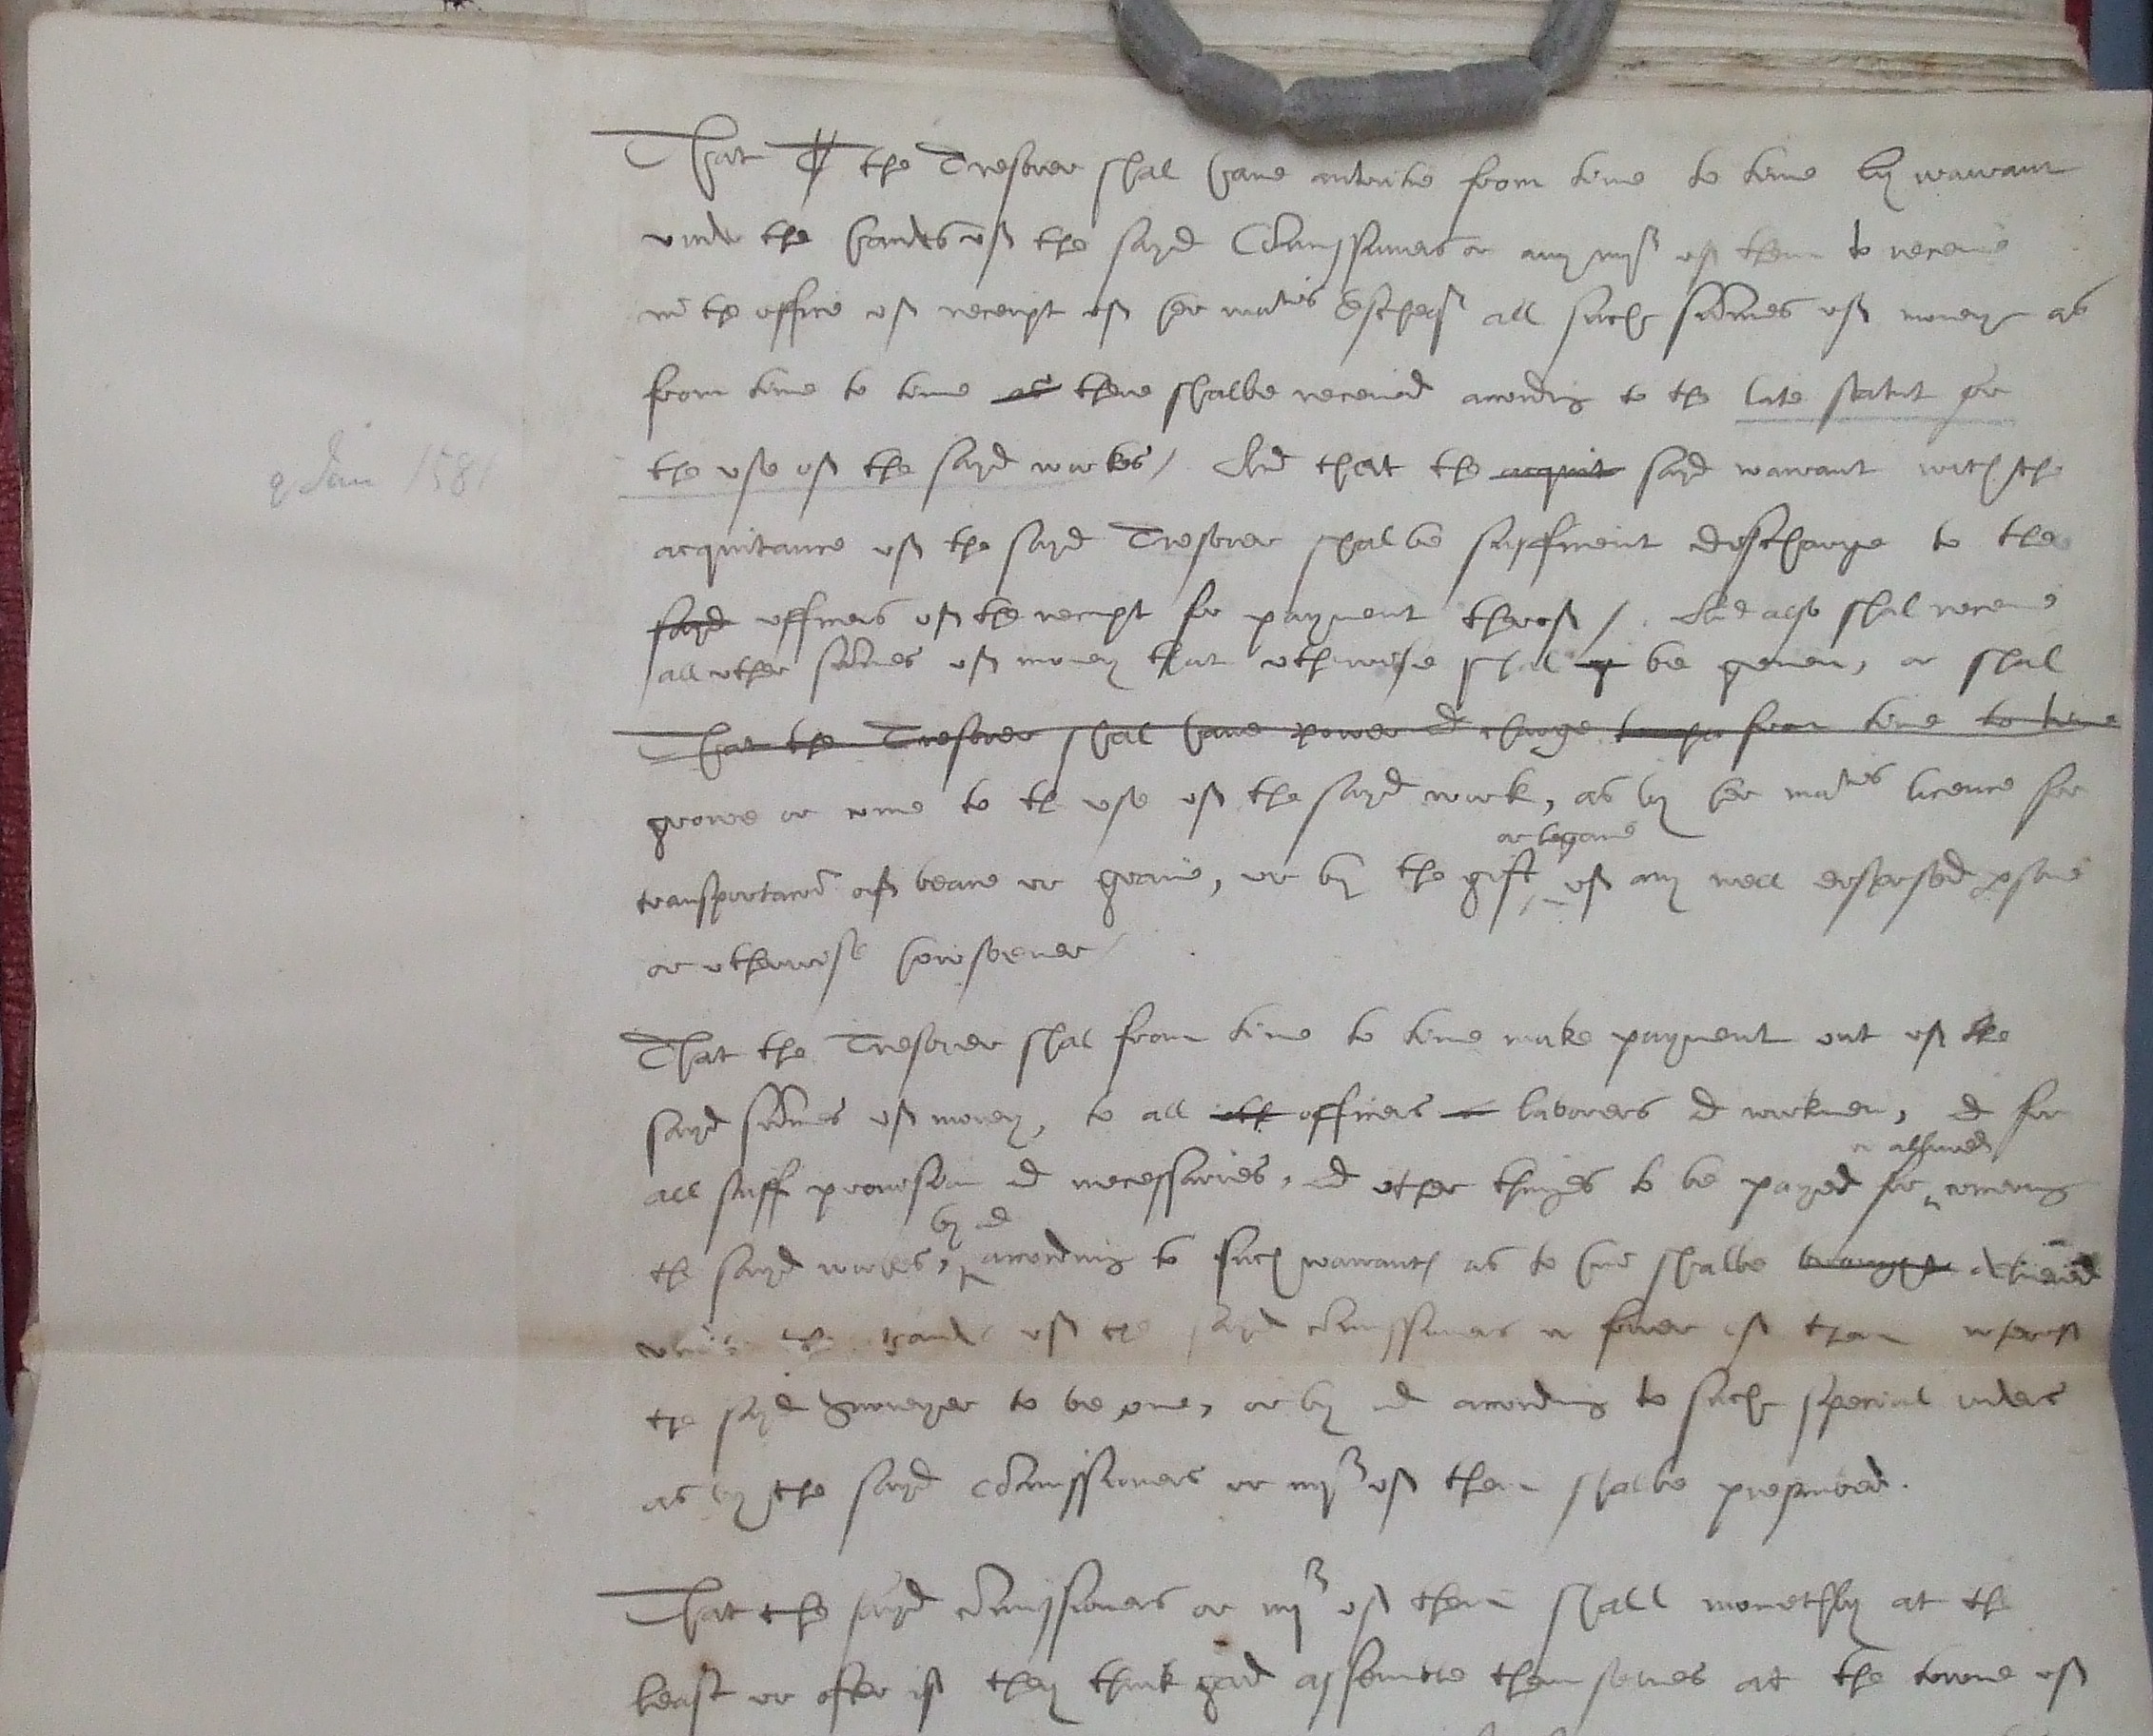 That the Tresorer shal have autorite from time to time by warrant
under the handes of the sayd Comissioners or any iiij of them to receive
in the office of receipt of her maties Eschequer all such sommes of money as
2 Jan 1581
from time to time as there shalbe received according to the late statut for
the use of the sayd workes / And that the acquit sayd warrant with the
acquitance of the sayd Tresorer shalbe sufficient discharge to the
sayd officers of the receipt for payment therof / And also shal receive
all other sommes of money that otherwise shal be geven, or shal
That the Tresorer shal have power and charge from time to time
growe or come to th use of the sayd work, as by her maties licence for
or legacie
transportacion of beare or graine, or by the gift of any well disposed psone
or otherwise howsoever /
That the Tresorer shal from time to time make payment out of the
sayd sommes of money, to all officers laborers and workmen, and for
or allowed
all stuff provision and necessaries, and other things to be payed for concerning
by and
the sayd workes, according to such warrants as to him shalbe brought delivered
under the handes of the sayd comissioners or fower of them wherof
the sayd Surveyer to be one, or by and according to such special orders
as by the sayd comissioners or iiij of them shalbe prescribed.
That the sayd comissioners or iiij of them shall monethly at the
least or ofter if they think good assemble themselves at the towne of